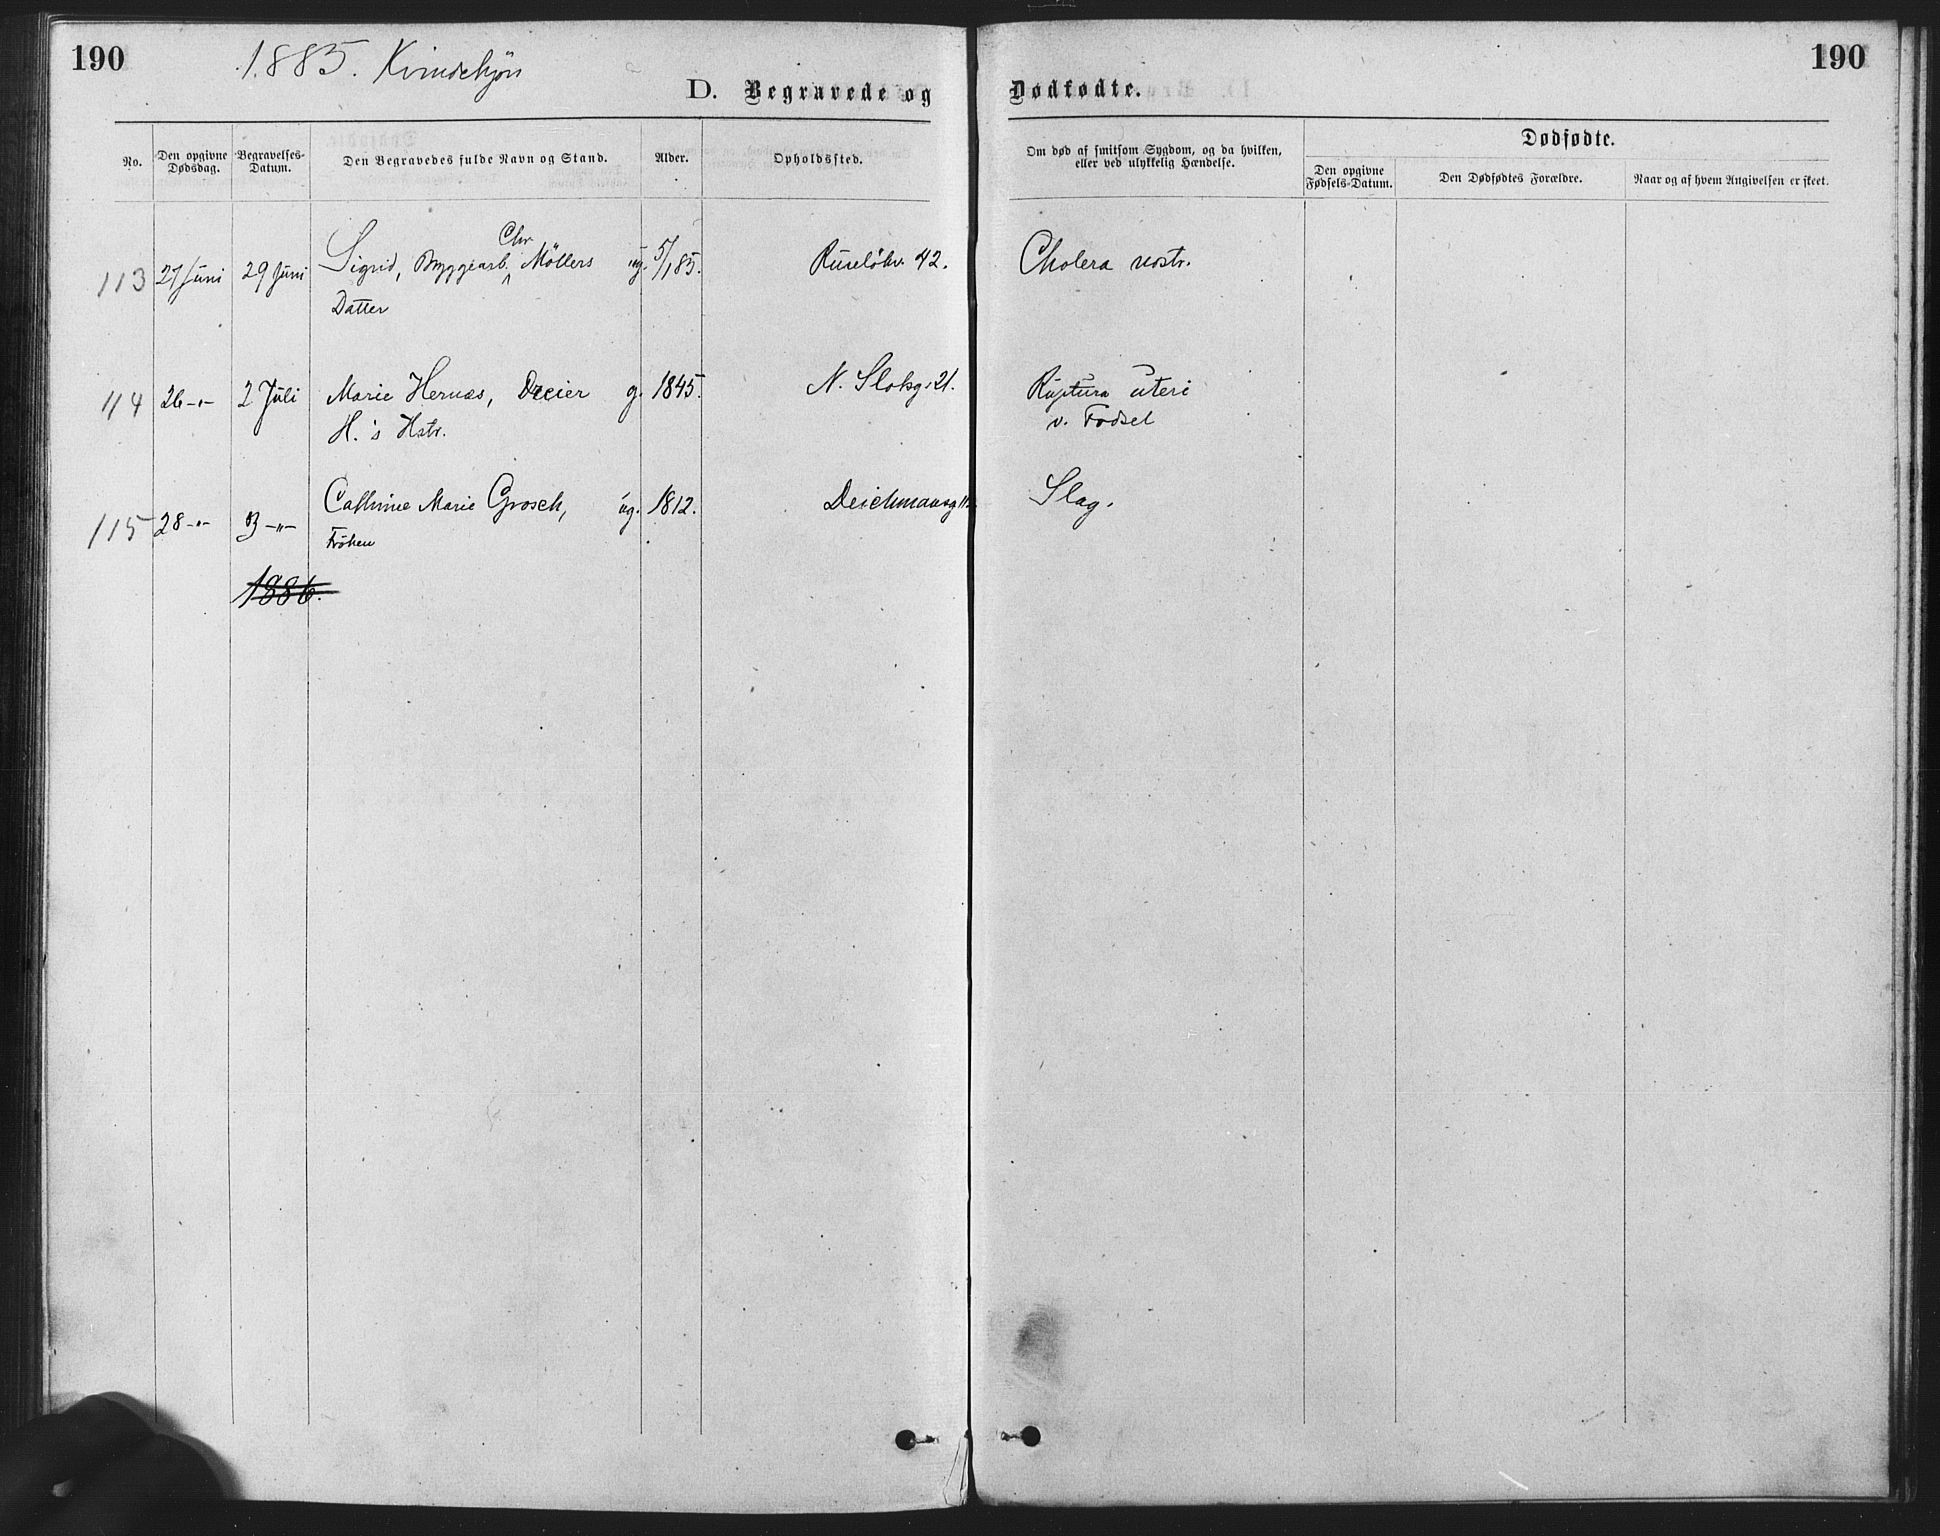 190
1885. Kvindekjön
190
D. Begravede og Dødfødte.
No.
Den opgivne Dødsdag.
Begravelses-Datum.
Den Begravedes fulde Navn og Stand.
Alder.
Opholdssted.
Om død af smitsom Sygdom, og da hvilken, eller ved ulykkelig Hændelse.
Dødfødte.
Den opgivne Fødsels-Datum.
Den Dødfødtes Forældre.
Naar og af hvem Angivelsen er skeet.
113 27 Juni 29 Juni Sigrid, Byggearb. Chr. Möllers ug. 5/1 85. Ruselökv. 42. Cholera nostr.
Datter
114 26 -"- 2 Juli Marie Hernæs, Dreier g. 1845. N. Slotsg. 21. Ruptura uteri
H.'s Hstr. v. Födsel
115 28 -"- 3 -"- Cathrine Marie Grosch, ug. 1812. Deichmansg Slag.
Fröken
1886.